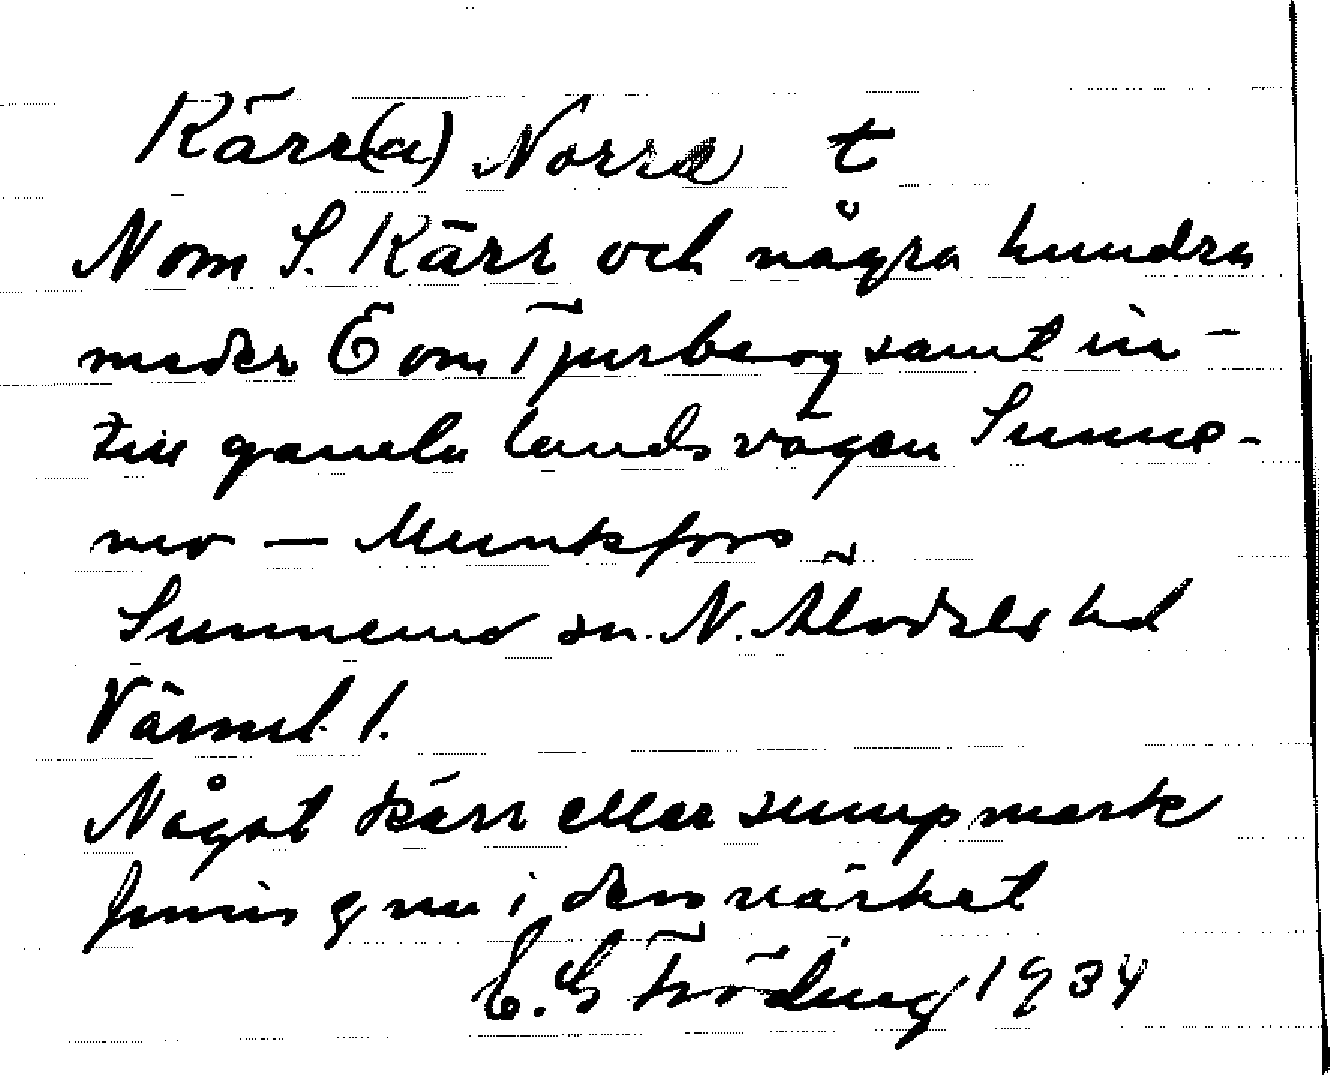 Kärr(a) Norra t
N om S. Kärr och några hundra
meder E om Tjurberg samt in-
till gamla landsvägen Sunne-
mo — Munkfors
Sunnemo sn. N. Älvdals hd
Värml l.
Något kärr eller sumpmark
finns ej nu i dess närhet
E. G Fröding 1934